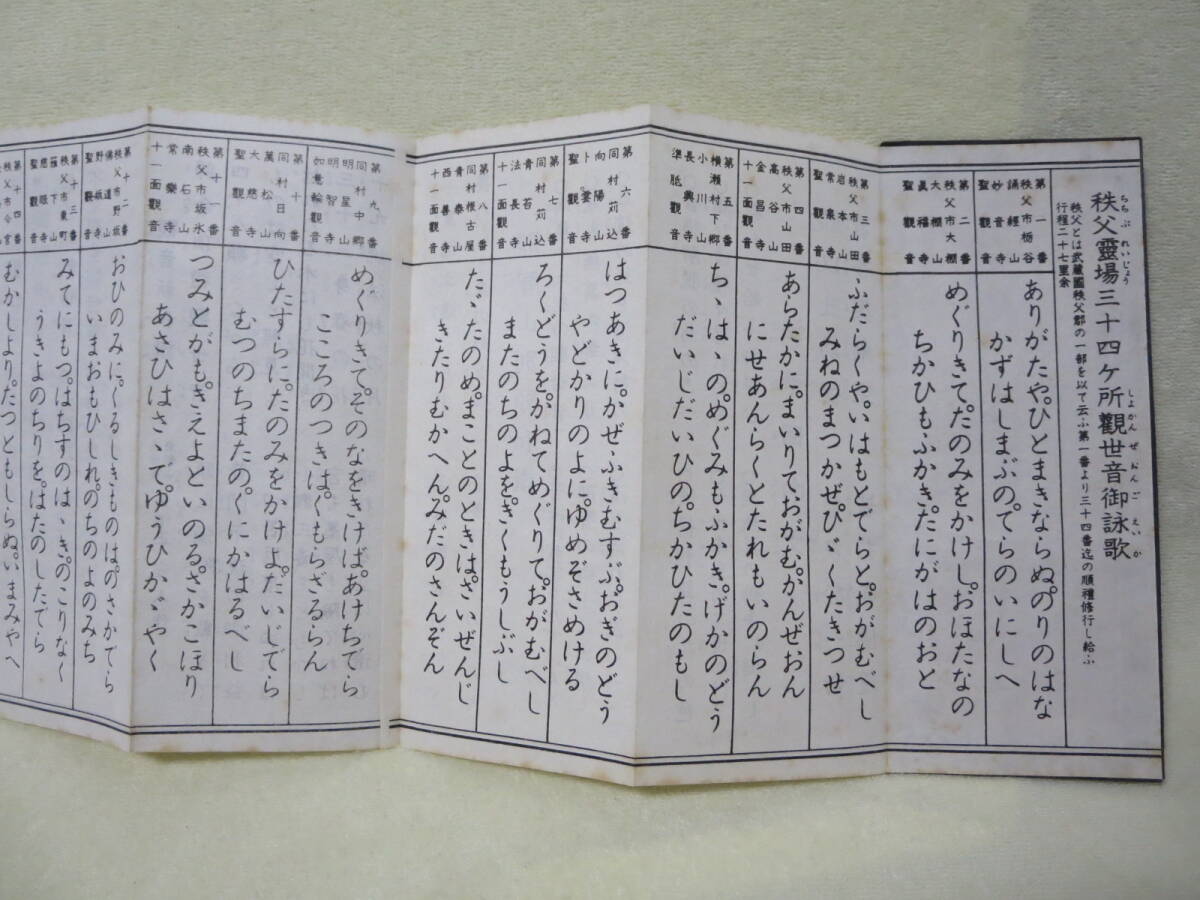 秩父靈場三十四ケ所觀世音御詠歌
ちちぶ れいじょう しよかん ぜ おん ご えい か
秩父とは武蔵國秩父郡の一部を以て云ふ第一番より三十四番迄の順禮修行し給ふ
行程二十七里余
第一番
秩父市栃谷
誦經山
妙音寺
聖觀音
ありがたや。ひとまきならぬ。のりのはな
かずはしまぶの。てらのいにしへ
第二番
秩父市大棚
大棚山
眞福寺
聖觀音
めぐりきて。たのみをかけし。おほたなの
ちかひもふかき。たにがはのおと
第三番
秩父市山田
岩本山
常泉寺
聖觀音
ふだらくや。いはもとでらと。おがむべし
みねのまつかぜ。ひゞくたきつせ
第四番
秩父市山田
高谷山
金昌寺
十一面觀音
あらたかに。まいりておがむ。かんぜおん
にせあんらくとたれもいのらん
第五番
横瀬村下郷
小川山
長興寺
準胝觀音
ちゝはゝの。めぐみもふかき。げかのどう
だいじだいひの。ちかひたのもし
第六番
同村苅込
向陽山
卜雲寺
聖觀音
はつあきに。かぜふきむすぶ。おぎのどう
やどかりのよに。ゆめぞさめける
第七番
同村苅込
青苔山
法長寺
十一面觀音
ろくどうを。かねてめぐりて。おがむべし
またのちのよを。きくもうしぶし
第八番
同村根古屋
青泰山
西善寺
十一面觀音
たゞたのめ。まことのときは。ざいぜんじ
きたりむかへん。みだのさんぞん
第九番
同村中郷
明星山
明智寺
如意輪觀音
めぐりきて。そのなをきけば。あけちでら
こころのつきは。くもらざるらん
第十番
同村日向
萬松山
大慈寺
聖觀音
ひたすらに。たのみをかけよ。だいじでら
むつのちまたの。くにかはるべし
第十一番
秩父市坂氷
南石山
常樂寺
十一面觀音
つみとがも。きえよといのる。さかこほり
あさひはさゝで。ゆうひかゞやく
第十二番
秩父市野坂
佛道山
野坂寺
聖觀音
おひのみに。くるしきものは。のさかでら
いまおもひしれ。のちのよのみち
第十三番
秩父市東町
慈眼寺
聖觀音
みてにもつ。はちすのはゝき。のこりなく
うきよのちりを。はたのしたでら
第十四番
秩父市今宮
むかしより。たつともしらぬ。いまみやへ